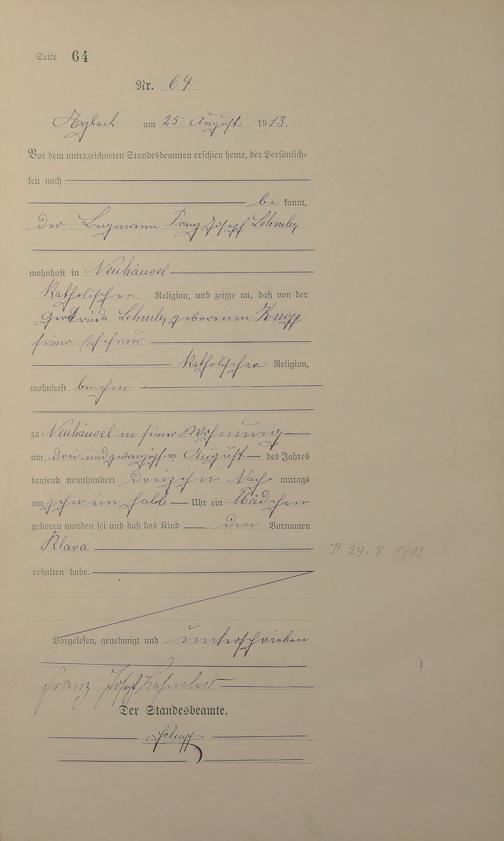 Seite 64
Nr. 64
Arzbach am 25 August 1913.
Vor dem unterzeichneten Standesbeamten erschien heute, der Persönlich-
keit nach
be kannt,
der Bergmann Franz Joseph
wohnhaft in Neuhäusel
katholischer Religion, und zeigte an, daß von der
Gertrude geborenen Knopp
seiner Ehefrau
katholischer Religion,
wohnhaft bei ihm
zu Neuhäusel in seiner Wohnung
am drei und zwanzigsten August des Jahres
tausend neunhundert dreizehn Nach mittags
um zehn ein halb Uhr ein Mädchen
geboren worden sei und daß das Kind den Vornamen
Klara
erhalten habe.
24. 8. 1913
Vorgelesen, genehmigt und unterschrieben
Franz Josef
Der Standesbeamte.